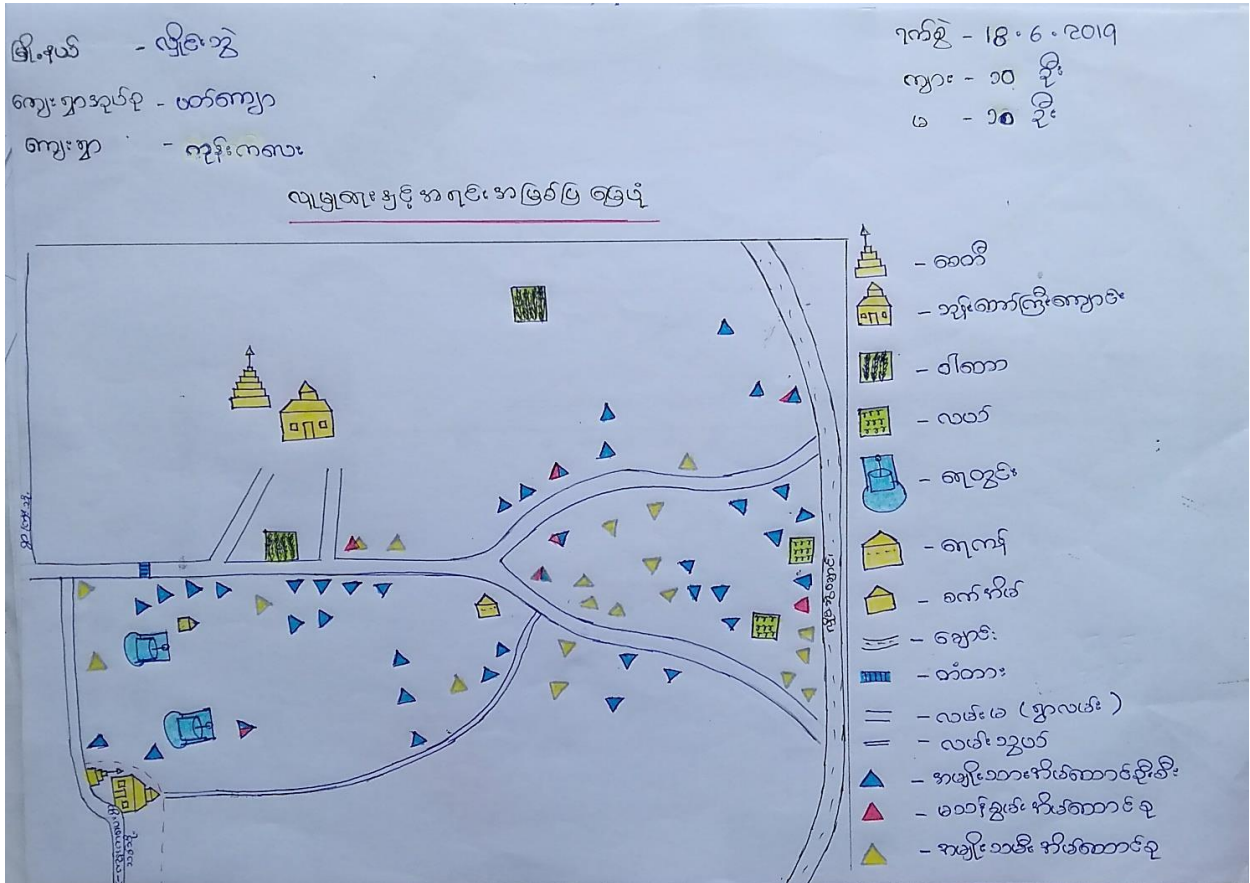 မြို့နယ် - လှိုင်းဘွဲ
ကျေးရွာအုပ်စု - ဖတ်ကျော
ကျေးရွာ - ကုန်းကလေး
ရက်စွဲ - 18.6.2019
ကျား - ၁၀ ဦး
မ - ၁၀ ဦး
လူမှုရေးနှင့် အရင်းအမြစ်ပြ မြေပုံ
- စေတီ
- ဘုန်းတော်ကြီးကျောင်း
- ဝါးတော
- ရေတွင်း
- ရေကန်
- စက်အိမ်
- ချောင်း
- တံတား
- လမ်းမ (ရွာလမ်း)
- လမ်းသွယ်
- အမျိုးသားအိမ်ထောင်ဦးစီး
- မသန်စွမ်း အိမ်ထောင်စု
- အမျိုးသမီး အိမ်ထောင်စု